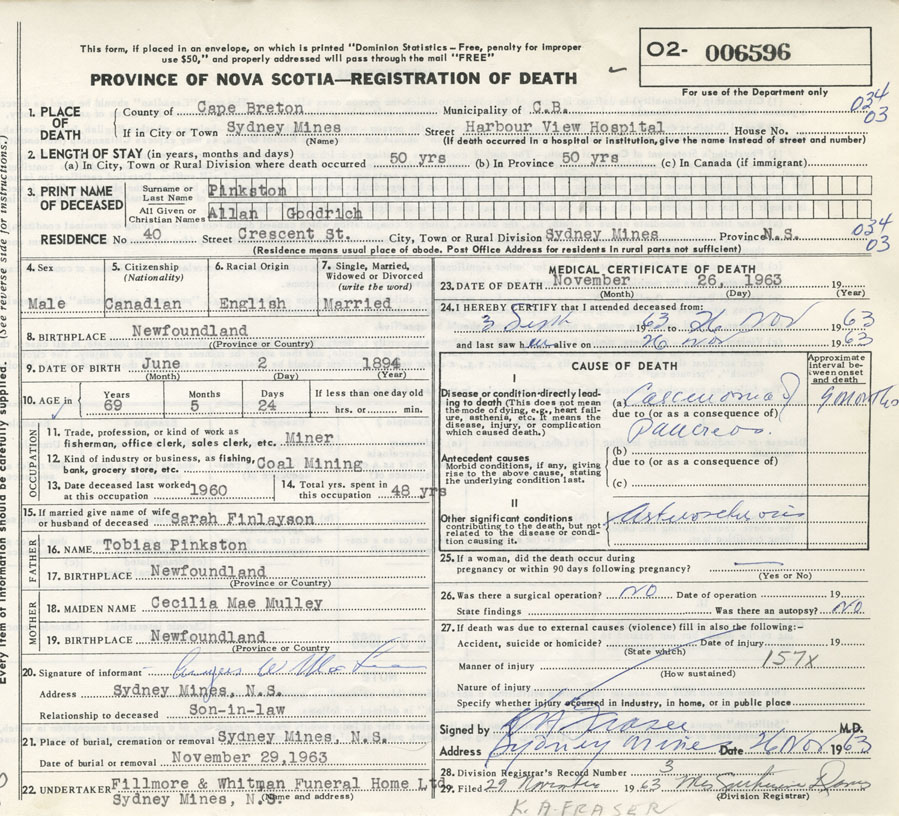 This form, if placed in an envelope, on which is printed "Dominion Statistics - Free, penalty for improper
use $50," and properly addressed will pass through the mail "FREE"
O2- 006596
For use of the Department only
PROVINCE OF NOVA SCOTIA—REGISTRATION OF DEATH
034
03
1. PLACE OF DEATH County of Cape Breton Municipality of C.B.
If in City or Town Sydney Mines Street Harbour View Hospital House No.
(Name) (If death occurred in a hospital or institution, give the name instead of street and number)
2. LENGTH OF STAY (in years, months and days)
(a) In City, Town or Rural Division where death occurred 50 yrs (b) In Province 50 yrs (c) In Canada (if immigrant)
3. PRINT NAME OF DECEASED
Surname or Last Name Pinkston
All Given or Christian Names Allan Goodrich
034
03
RESIDENCE No 40 Street Crescent St. City, Town or Rural Division Sydney Mines Province N.S.
(Residence means usual place of abode. Post Office Address for residents in rural parts not sufficient)
4. Sex Male
5. Citizenship (Nationality) Canadian
6. Racial Origin English
7. Single, Married, Widowed or Divorced (write the word) Married
8. BIRTHPLACE Newfoundland
(Province or Country)
9. DATE OF BIRTH June 2 1894
(Month) (Day) (Year)
10. AGE in Years 69 Months 5 Days 24 If less than one day old hrs. or min.
OCCUPATION
11. Trade, profession or kind of work as fisherman, office clerk, sales clerk, etc. Miner
12. Kind of industry or business, as fishing, bank, grocery store, etc. Coal Mining
13. Date deceased last worked at this occupation 1960
14. Total yrs. spent in this occupation 48 yrs
15. If married give name of wife or husband of deceased Sarah Finlayson
FATHER
16. NAME Tobias Pinkston
17. BIRTHPLACE Newfoundland
(Province or Country)
MOTHER
18. MAIDEN NAME Cecilia Mae Mulley
19. BIRTHPLACE Newfoundland
(Province or Country)
20. Signature of informant
Address Sydney Mines, N.S.
Relationship to deceased Son-in-law
21. Place of burial, cremation or removal Sydney Mines, N.S.
Date of burial or removal November 29,1963
22. UNDERTAKER Fillmore & Whitman Funeral Home Ltd
Sydney Mines, N.S. (Name and address)
MEDICAL CERTIFICATE OF DEATH
23. DATE OF DEATH November 26, 1963 19
(Month) (Day) (Year)
24. I HEREBY CERTIFY that I attended deceased from:
3 Sept 1963 to 26 Nov 1963
and last saw him alive on 26 Nov 1963
CAUSE OF DEATH
Approximate interval between onset and death
I
Disease or condition directly leading to death (This does not mean the mode of dying, e.g., heart failure, asthenia, etc. It means the disease, injury, or complication which caused death.)
(a) Carcinoma of 9 months
due to (or as a consequence of)
Pancreas.
Antecedent causes
Morbid conditions, if any, giving rise to the above cause, stating the underlying condition last.
(b)
due to (or as a consequence of)
(c)
II
Other significant conditions contributing to the death, but not related to the disease or condition causing it.
25. If a woman, did the death occur during
pregnancy or within 90 days following pregnancy? —
(Yes or No)
26. Was there a surgical operation? NO Date of operation 19
State findings Was there an autopsy? NO
27. If death was due to external causes (violence) fill in also the following:-
Accident, suicide or homicide? Date of injury 19
(State which)
Manner of injury 157X
(How sustained)
Nature of injury
Specify whether injury occurred in industry, in home, or in public place
Signed by K A Fraser M.D.
Address Sydney Mines Date 26 Nov 1963
28. Division Registrar's Record Number 3
29. Filed 29 November 1963 Mrs
(Division Registrar)
K.A. FRASER
Every item of information should be carefully supplied. (See reverse side for instructions.)